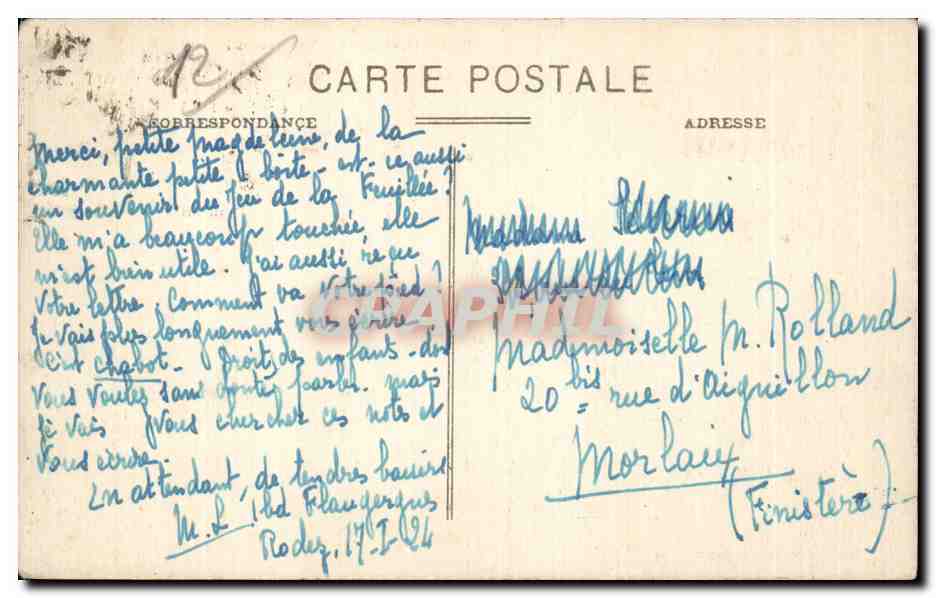 12
CARTE POSTALE
CORRESPONDANCE
ADRESSE
Merci, petite Magdeleine, de la
charmante petite boîte - est-ce aussi
un souvenir du Jeu de la Feuillée?
Elle m'a beaucoup touchée, elle
m'est bien utile. J'ai aussi reçu
votre lettre. Comment va votre
Je vais plus longuement vous écrire
C'est Chabot. Droit des enfants - dont
vous voulez sans doute parler. Mais
je vais vous chercher ces notes et
vous écrire.
En attendant, de tendres baisers
M. L 1 bd Flaugergues
Rodez, 17-I-24
Madame
Mademoiselle M. Rolland
20 bis rue d'Aiguillon
Morlaix
(Finistère)
CRAPHIL